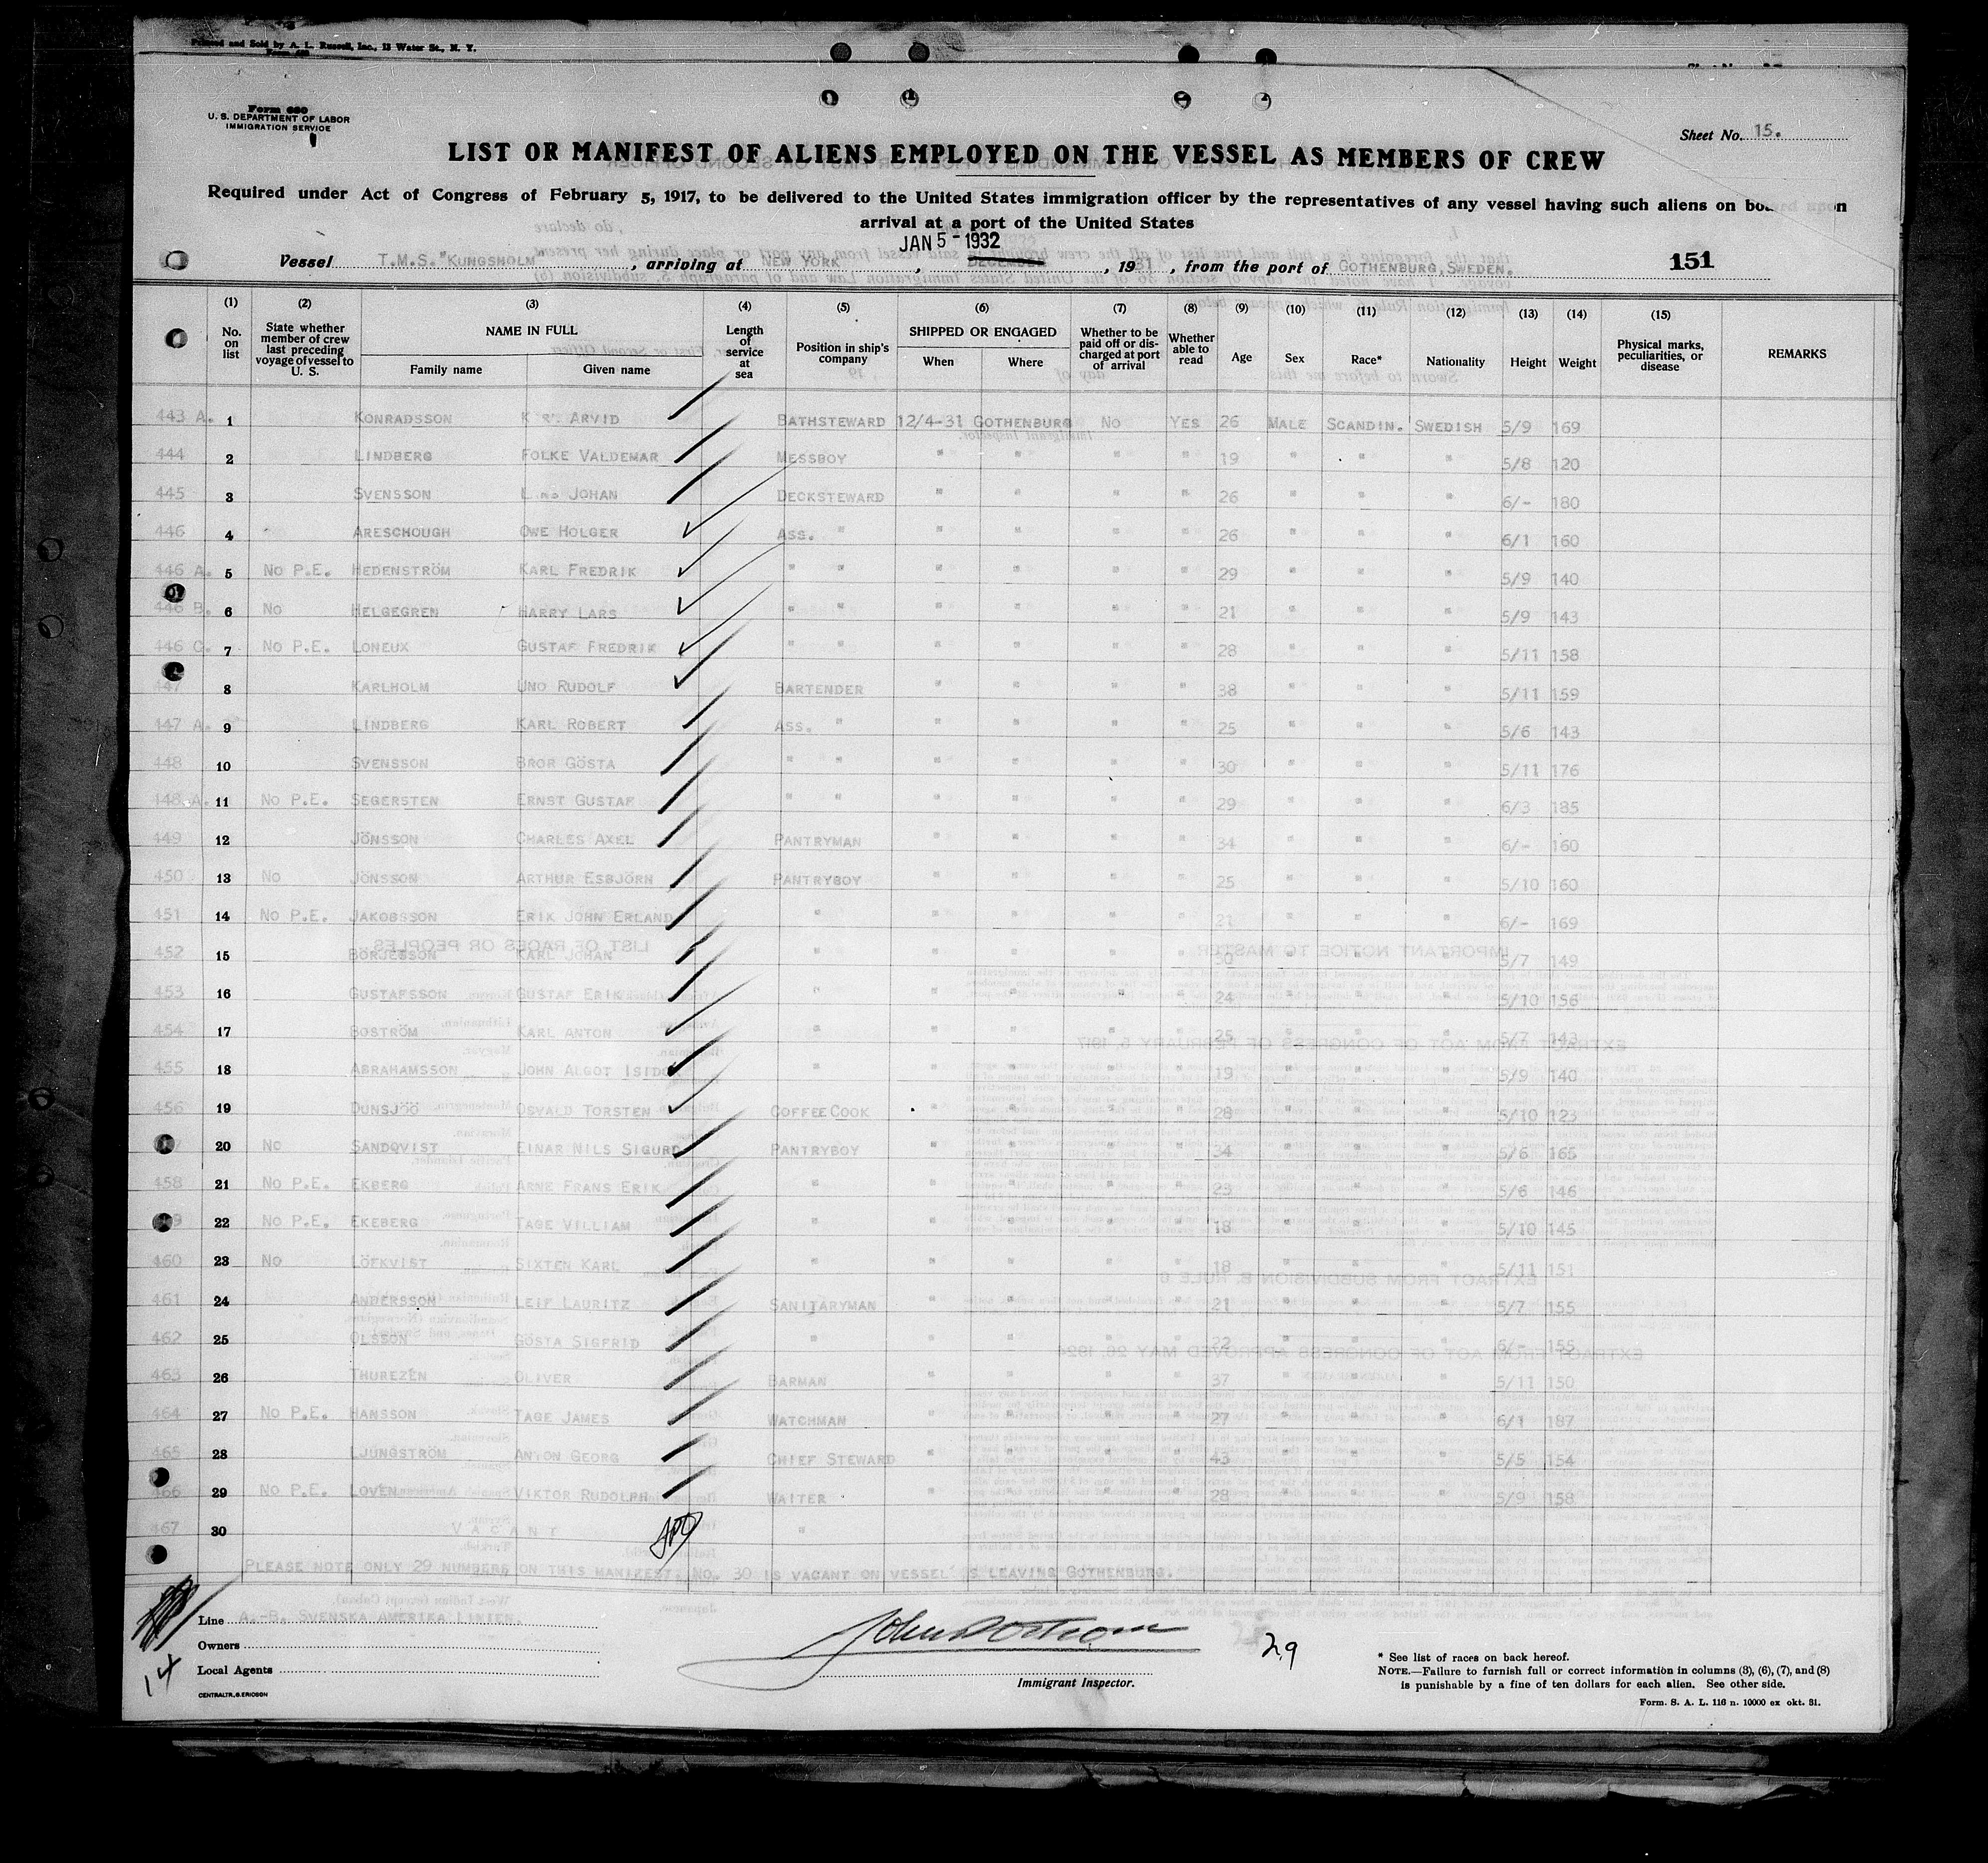 Printed and Sold by A. L. Russell, Inc., 13 Water St., N. Y.
Form 680
U. S. DEPARTMENT OF LABOR
IMMIGRATION SERVICE
Sheet No. 15.
LIST OR MANIFEST OF ALIENS EMPLOYED ON THE VESSEL AS MEMBERS OF CREW
Required under Act of Congress of February 5, 1917, to be delivered to the United States immigration officer by the representatives of any vessel having such aliens on board upon
arrival at a port of the United States
JAN 5 - 1932
Vessel T.M.S. "KUNGSHOLM", arriving at NEW YORK, DECEMBER, 1931, from the port of GOTHENBURG, SWEDEN. 151
(1) (2) (3) (4) (5) (6) (7) (8) (9) (10) (11) (12) (13) (14) (15)
No. on list | State whether member of crew last preceding voyage of vessel to U. S. | NAME IN FULL | Length of service at sea | Position in ship's company | SHIPPED OR ENGAGED | Whether to be paid off or discharged at port of arrival | Whether able to read | Age | Sex | Race* | Nationality | Height | Weight | Physical marks, peculiarities, or disease | REMARKS
Family name | Given name | When | Where
443 A. 1 KONRADSSON ARVID BATHSTEWARD 12/4-31 GOTHENBURG NO YES 26 MALE SCANDIN. SWEDISH 5/9 169
444 2 LINDBERG FOLKE VALDEMAR MESSBOY " " " " 19 " " " 5/8 120
445 3 SVENSSON JOHAN DECKSTEWARD " " " " 26 " " " 6/- 180
446 4 ARESCHOUGH OWE HOLGER ASS. " " " " " 26 " " " 6/1 160
446 A. 5 NO P.E. HEDENSTRÖM KARL FREDRIK " " " " " " 29 " " " 5/9 140
446 B. 6 NO HELGEGREN HARRY LARS " " " " " " 21 " " " 5/9 143
446 C. 7 NO P.E. LONEUX GUSTAF FREDRIK " " " " " " 28 " " " 5/11 158
447 8 KARLHOLM UNO RUDOLF BARTENDER " " " " 38 " " " 5/11 159
447 A. 9 LINDBERG KARL ROBERT ASS. " " " " " 25 " " " 5/6 143
448 10 SVENSSON BROR GÖSTA " " " " " " 30 " " " 5/11 176
448 A. 11 NO P.E. SEGERSTEN ERNST GUSTAF " " " " " " 29 " " " 6/3 185
449 12 JÖNSSON CHARLES AXEL PANTRYMAN " " " " 34 " " " 6/- 160
450 13 NO JONSSON ARTHUR ESBJÖRN PANTRYBOY " " " " 25 " " " 5/10 160
451 14 NO P.E. JAKOBSSON ERIK JOHN ERLAND " " " " " 21 " " " 6/- 169
452 15 BÖRJESSON KARL JOHAN " " " " " 30 " " " 5/7 149
453 16 GUSTAFSSON GUSTAF ERIK " " " " " 24 " " " 5/10 156
454 17 BOSTRÖM KARL ANTON " " " " " 25 " " " 5/7 143
455 18 ABRAHAMSSON JOHN ALGOT ISIDOR " " " " " 19 " " " 5/9 140
456 19 DUNSJÖÖ OSVALD TORSTEN COFFEE COOK " " " " 28 " " " 5/10 123
20 NO SANDQVIST EINAR NILS SIGURD PANTRYBOY " " " " 34 " " " 5/6 165
458 21 NO P.E. EKBERG ARNE FRANS ERIK " " " " " 23 " " " 5/6 146
22 NO P.E. EKEBERG TAGE VILLIAM " " " " " 18 " " " 5/10 145
460 23 NO LÖFKVIST SIXTEN KARL " " " " " 18 " " " 5/11 151
461 24 ANDERSSON LEIF LAURITZ SANITARYMAN " " " " 21 " " " 5/7 155
462 25 OLSSON GÖSTA SIGFRID " " " " " 22 " " " 6/- 155
463 26 THUREZÉN OLIVER BARMAN " " " " 37 " " " 5/11 150
464 27 NO P.E. HANSSON TAGE JAMES WATCHMAN " " " " 27 " " " 6/1 187
465 28 LJUNGSTRÖM ANTON GEORG CHIEF STEWARD " " " " 43 " " " 5/5 154
466 29 NO P.E. LOVÉN VIKTOR RUDOLPH WAITER " " " " 28 " " " 5/9 158
467 30 VACANT "
PLEASE NOTE ONLY 29 NUMBERS ON THIS MANIFEST. NO. 30 IS VACANT ON VESSEL'S LEAVING GOTHENBURG.
Line A.-B. SVENSKA AMERIKA LINIEN.
Owners
Local Agents
14
CENTRALTR., G. ERICSON
Immigrant Inspector.
29
* See list of races on back hereof.
NOTE.—Failure to furnish full or correct information in columns (3), (6), (7), and (8)
is punishable by a fine of ten dollars for each alien. See other side.
Form. S. A. L. 116 n. 10000 ex okt. 31.